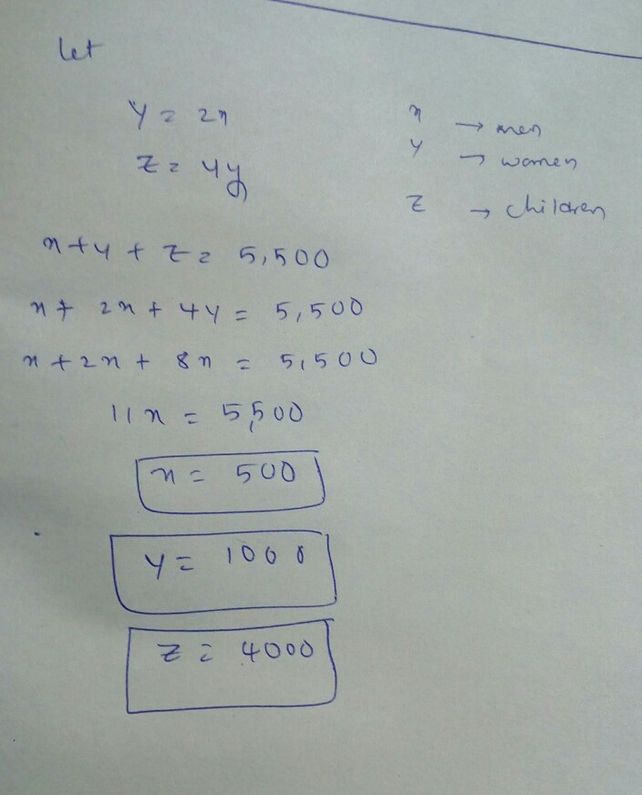 let
y = 2x
x → men
z = 4y
y → women
z → children
x + y + z = 5,500
x + 2x + 4y = 5,500
x + 2x + 8x = 5,500
11x = 5,500
x = 500
y = 1000
z = 4000